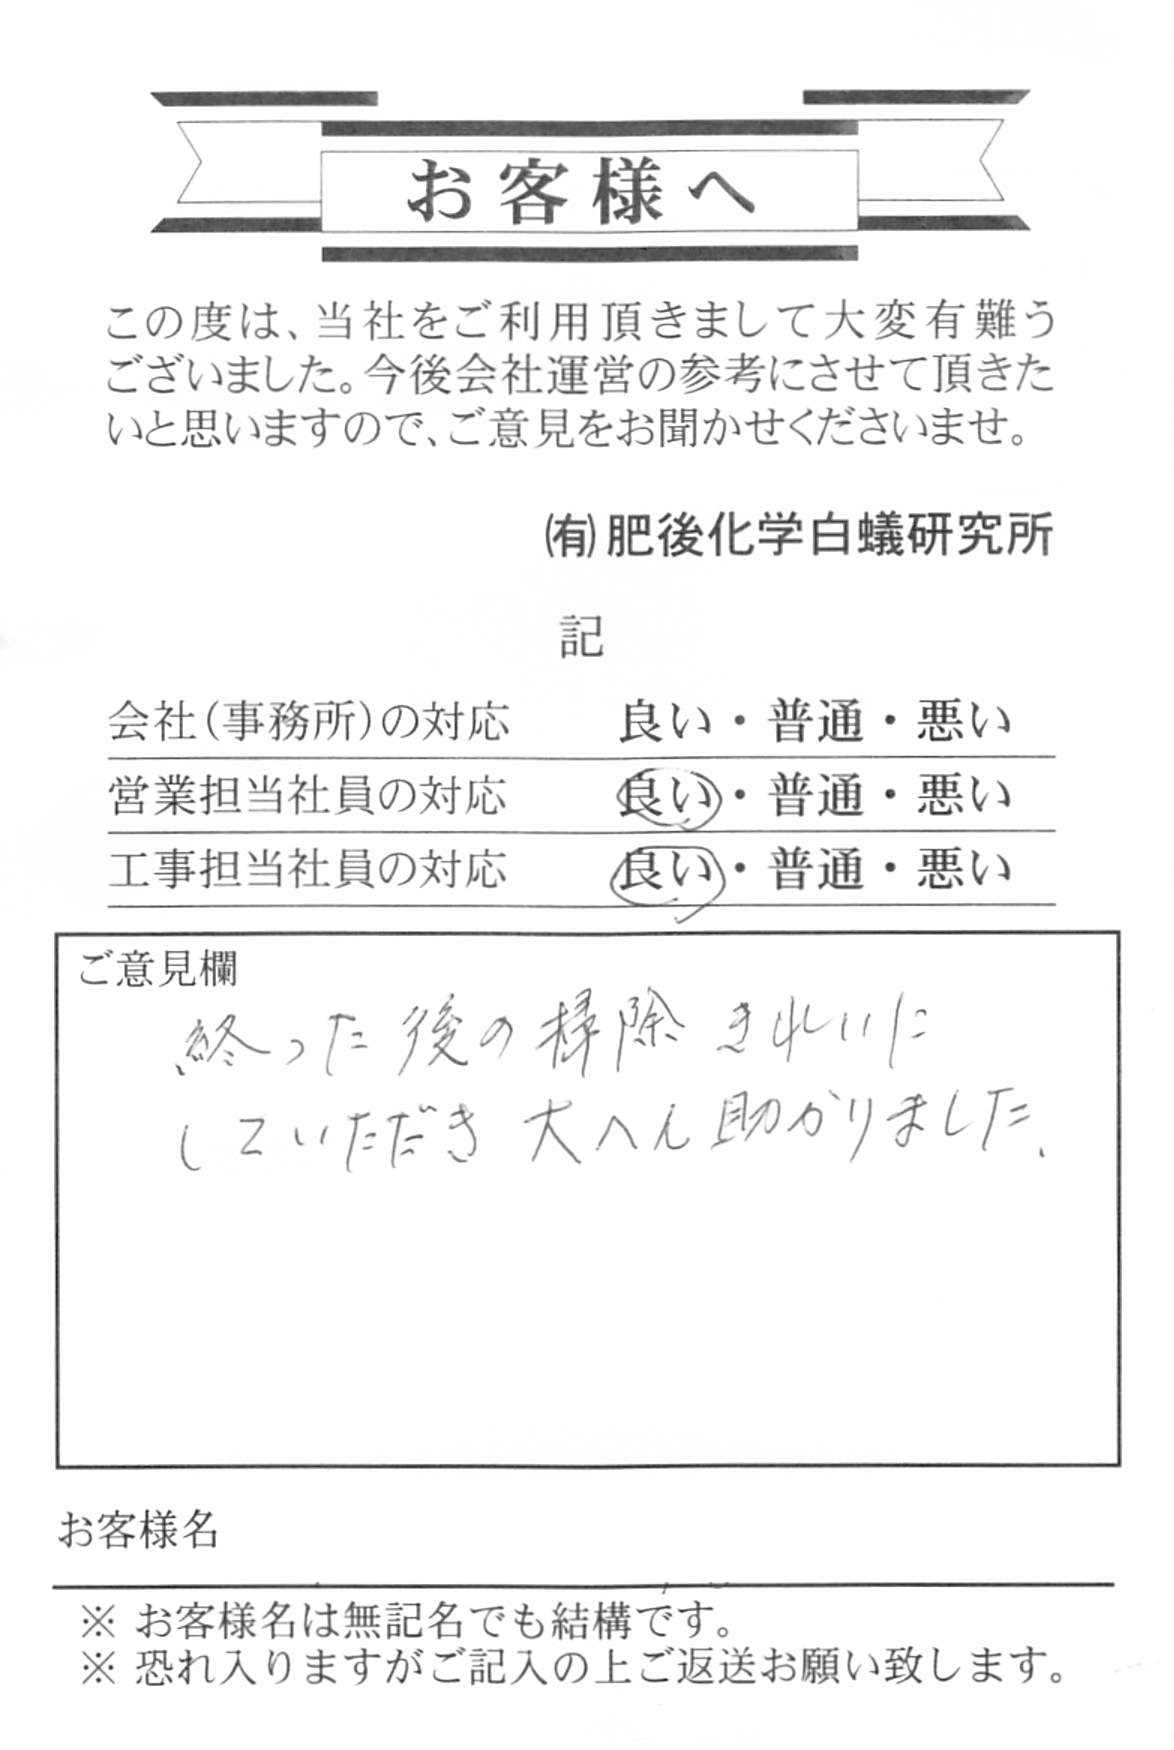 お客様へ
この度は、当社をご利用頂きまして大変有難う
ございました。今後会社運営の参考にさせて頂きた
いと思いますので、ご意見をお聞かせくださいませ。
㈲肥後化学白蟻研究所
記
会社(事務所)の対応 良い・普通・悪い
営業担当社員の対応 良い・普通・悪い
工事担当社員の対応 良い・普通・悪い
ご意見欄
終った後の掃除きれいに
していただき大へん助かりました、
お客様名
※ お客様名は無記名でも結構です。
※ 恐れ入りますがご記入の上ご返送お願い致します。